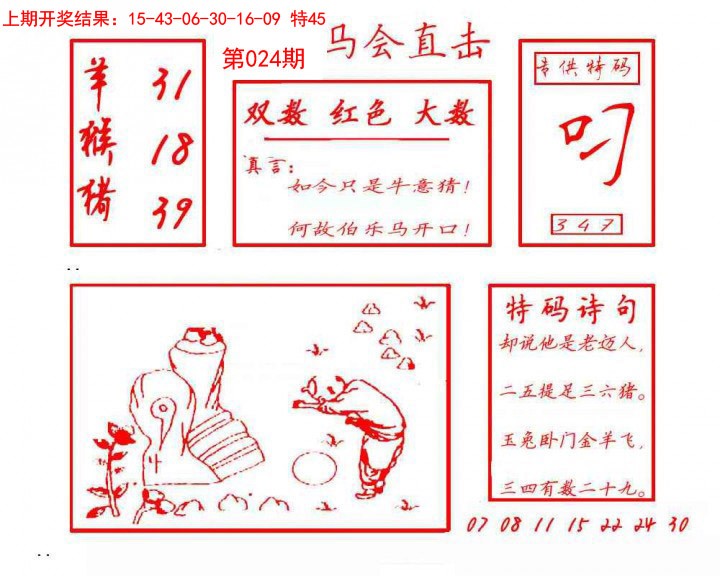 上期开奖结果：15-43-06-30-16-09 特45
第024期
马会直击
羊 31
猴 18
猪 39
双数 红色 大数
真言：
如今只是牛意猜！
何故伯乐马开口！
专供特码
叼
347
特码诗句
却说他是老迈人，
二五提足三六猪。
玉兔卧门金羊飞，
三四有数二十九。
07 08 11 15 22 24 30